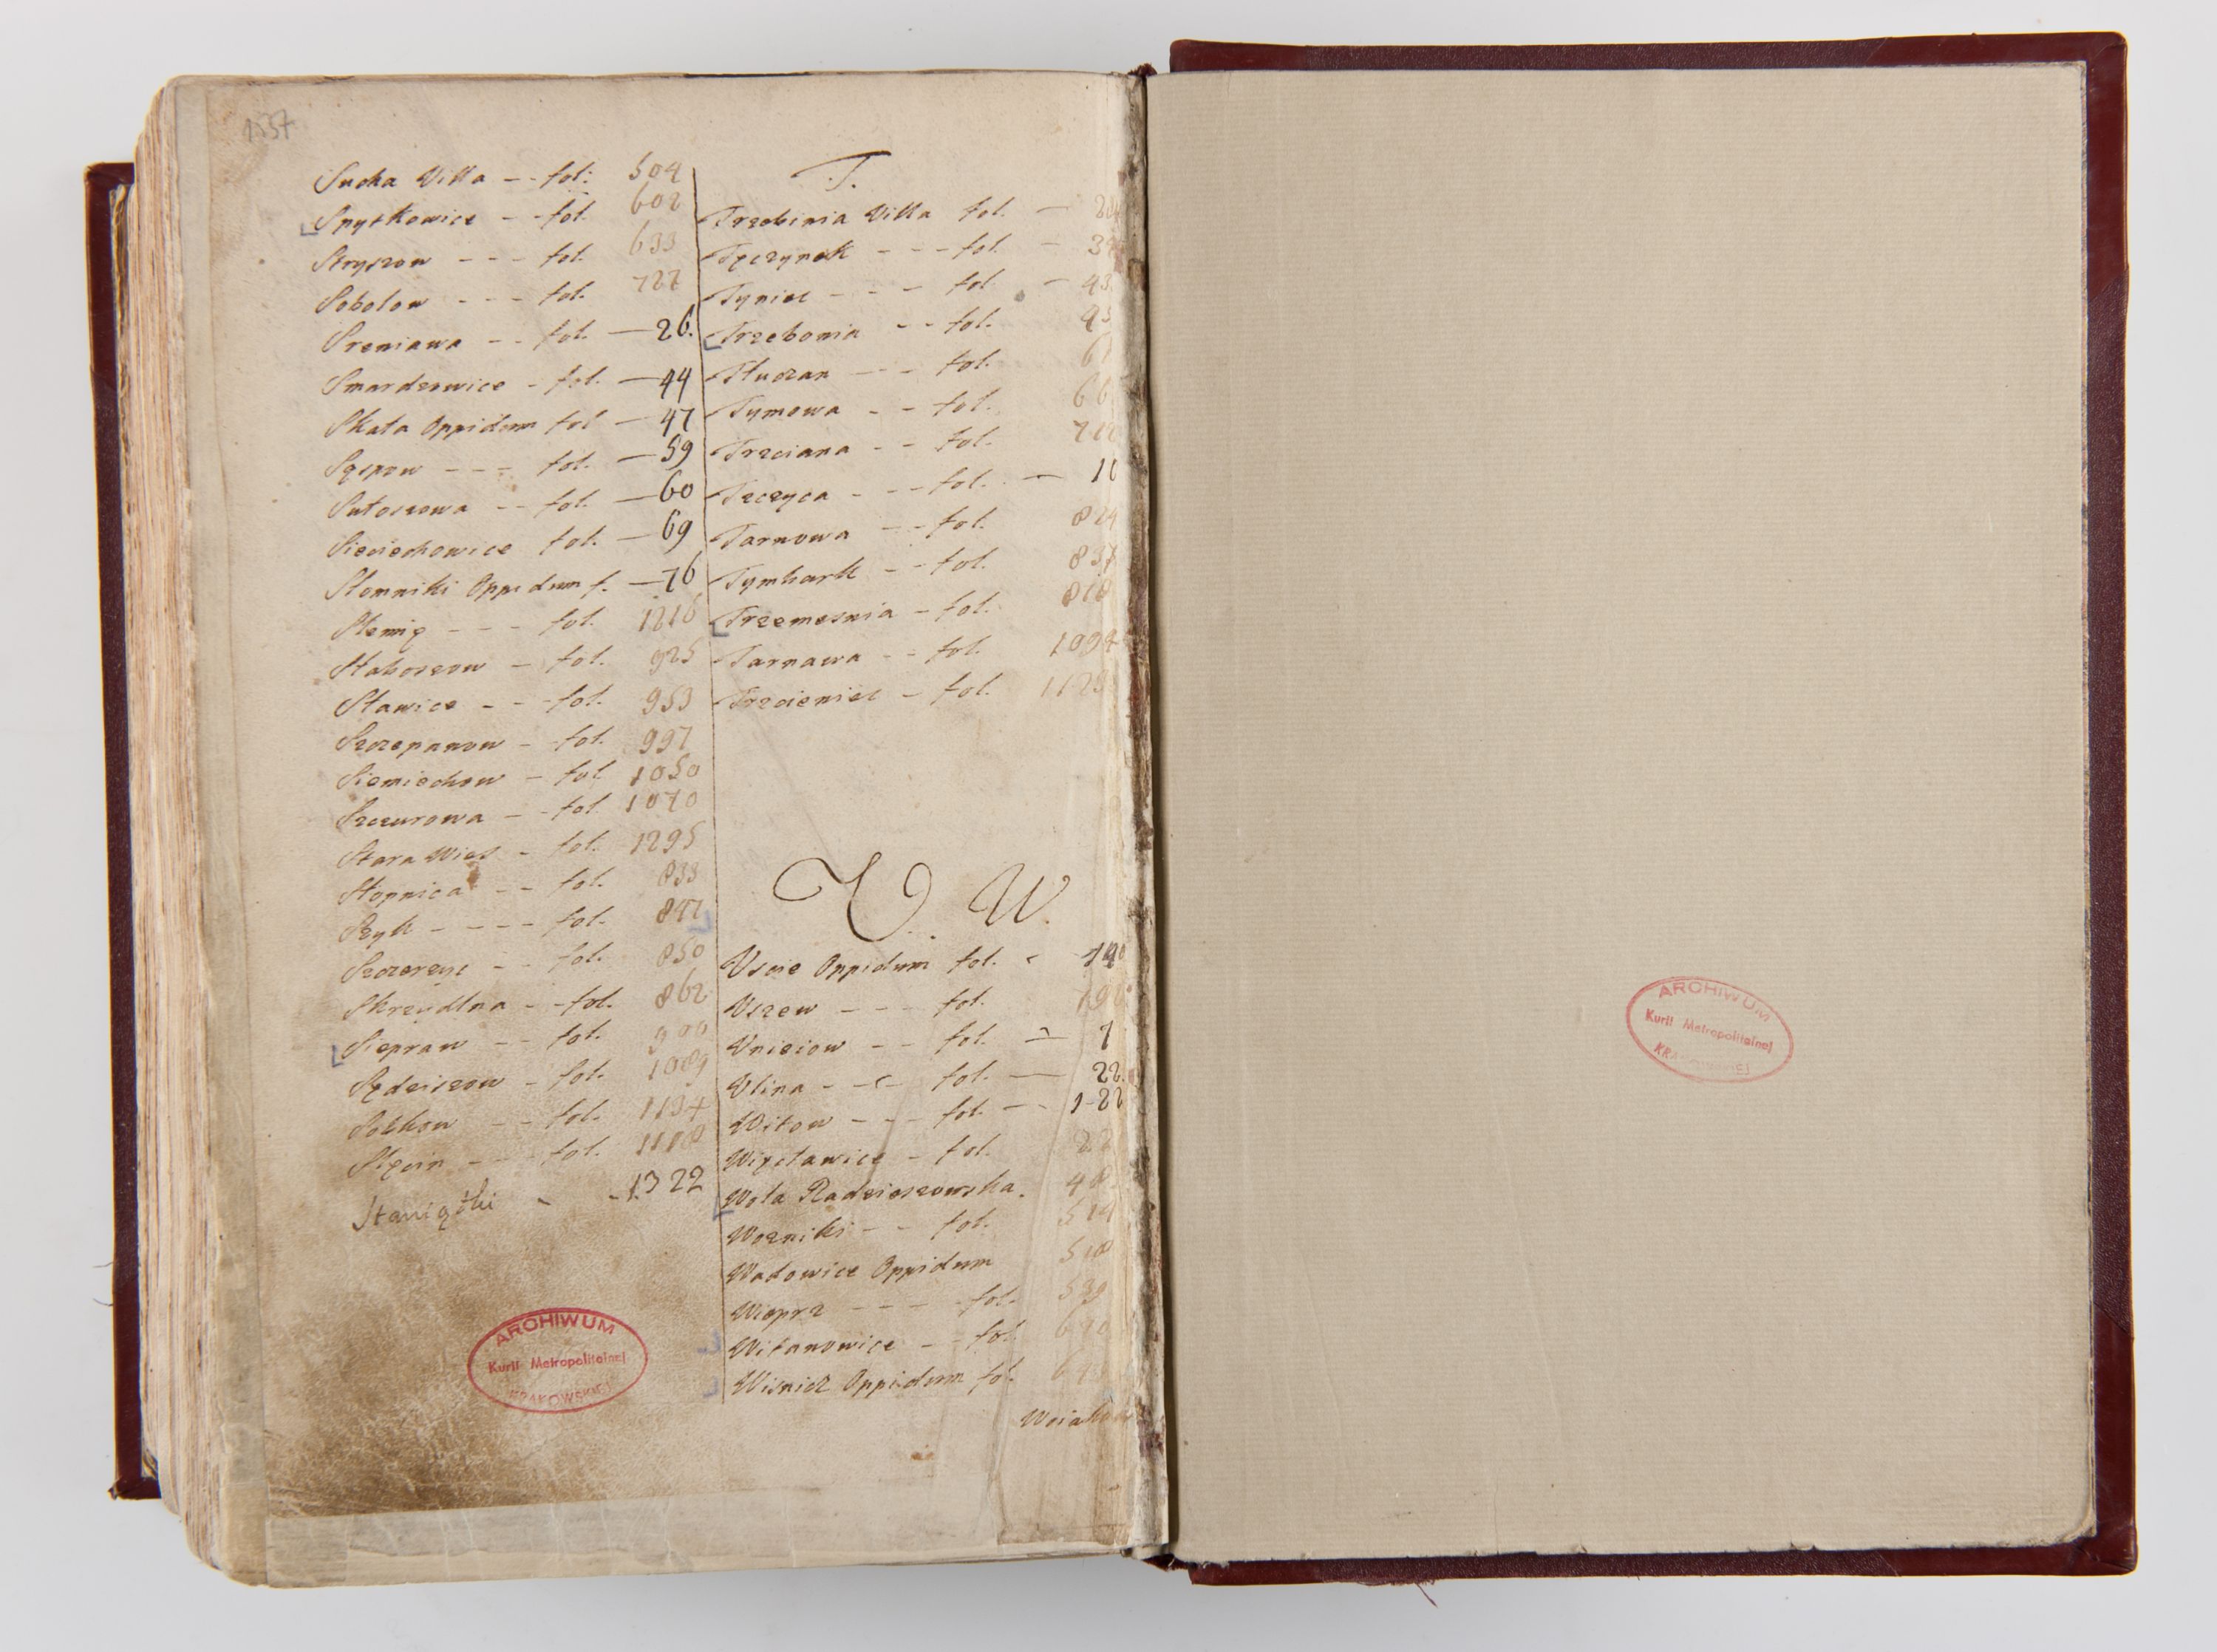 1537
Sucha Villa -- fol: 504
Spytkowice -- fol. 602
Stryszow --- fol. 633
Sobolow --- fol. 727
Sreniawa -- fol. — 26.
Smardzowice - fol. — 44
Skała Oppidum fol — 47
Sąspow --- fol. — 59
Sułoszowa -- fol. — 60
Sieciechowice fol. — 69
Słomniki Oppidum f. — 76
Slemię --- fol. 1216
Staboszow - fol. 925
Sławice --- fol. 953
Szczepanow - fol. 997
Siemiechow - fol 1050
Szczurowa -- fol. 1070
Stara Wies - fol. 1295
Słopnica -- fol. 833
Szyk ---- fol. 847
Szczerzyc -- fol. 850
Skrzydlna -- fol. 862
Siepraw -- fol. 900
Sędziszow - fol. 1089
Sobkow -- fol. 1134
Slęcin --- fol.
Staniątki - - 1322
T.
Trzebinia Villa fol. —
Tęczynek --- fol. —
Tyniec --- fol —
Trzebonia -- fol.
Tłuczan --- fol.
Tymowa -- fol.
Trzciana -- fol.
Tczyca --- fol. —
Tarnowa -- fol. 824
Tymbark -- fol. 837
Trzemesnia - fol.
Tarnawa -- fol.
Trzcieniec - fol.
V. W.
Vscie Oppidum fol.
Vszew --- fol.
Vnieiow -- fol. — 7
Vlina --- fol. — 22.
Witow --- fol. -- 1-22
Więcławice - fol.
Wola Radzieszowska.
Wozniki -- fol.
Wadowice Oppidum
Wieprz --- fol.
Witanowice -- fol.
Wisnicz Oppidum fol.
ARCHIWUM
Kurii Metropolitalnej
KRAKOWSKIEJ
ARCHIWUM
Kurii Metropolitalnej
KRAKOWSKIEJ